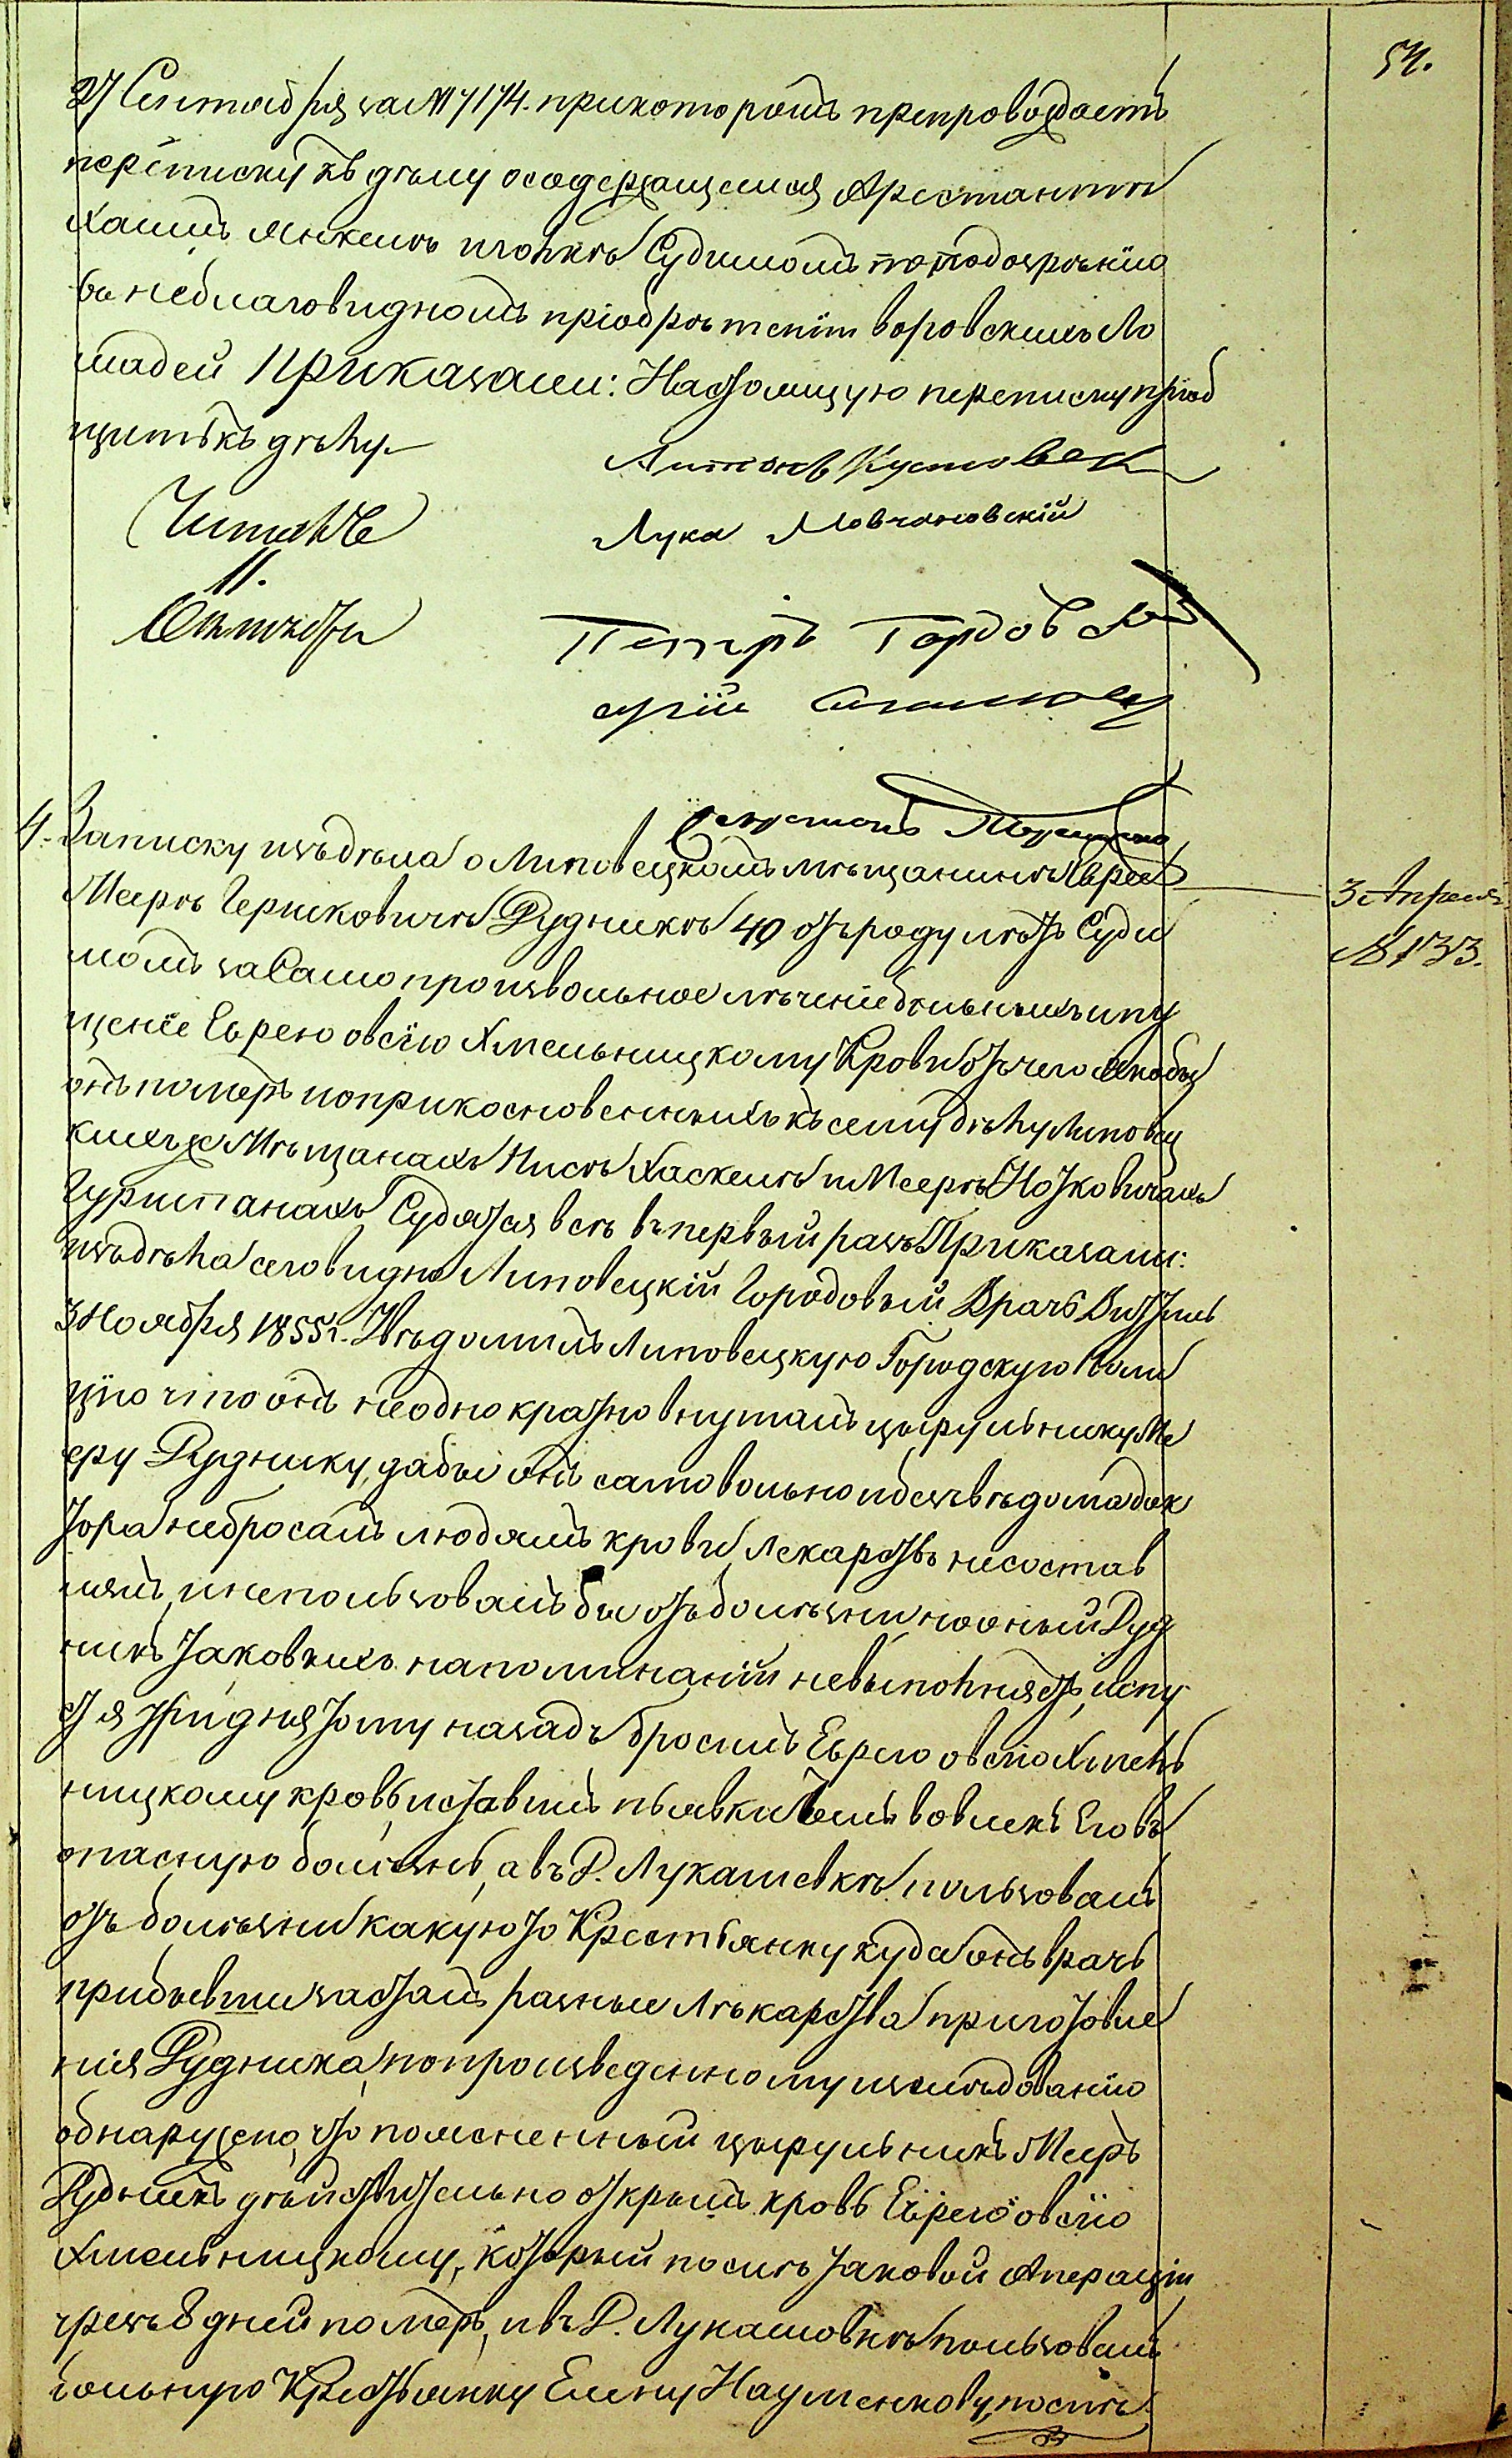 54.
27 Сентября за № 7174. при котором препровождает
переписку къ дѣлу о содержащемся Арестантѣ
Хаимѣ Янкелѣ судимомъ по подозрѣнію
въ неблаговидномъ пріобрѣтеніи воровскихъ ло
шадей Приказали: Настоящую переписку пріоб
щить къ дѣлу
Антонъ
Читалъ
Лука Мовчановскій
11.
Октября
Петръ
4. Записку изъ дѣла о Липовецкомъ мѣщанинѣ Евреѣ
3 Апреля
№ 133.
Меерѣ Гершковичѣ Рудникѣ 40 отъ роду лѣтъ Суди
момъ за Самопроизвольное лѣченіе больныхъ и пу
щеніе Еврею Овсію Хмельницкому Крови отъ чего якобы
онъ померъ и о прикосновенныхъ къ сему дѣлу Липовец
кихъ же Мѣщанахъ Хаскелѣ и Меерѣ Ноткovичахъ
Судятся всѣ въ первый разъ Приказали:
изъ дѣла сего видно Липовецкій Городовый Врачъ
3 Ноября 1855 г. Увѣдомилъ Липовецкую Городскую Поли
цію что онъ неоднократно внушалъ цырульнику Ме
еру Руднику, дабы онъ самовольно и безъ вѣдома док
тора не бросалъ людямъ крови, лекарствъ не состав
лялъ, и не пользовалъ бы отъ болѣзни но оный Руд
никъ таковыхъ напоминаній не выполняетъ, и спу
стя три дня тому назадъ бросилъ Еврею Овсію Хмель
ницкому кровь, и ставилъ пьявки чемъ вовлекъ Его въ
опасную болѣзнь, а въ Д. Лукашевкѣ пользовалъ
отъ болѣзни какую то Крестьянку куда онъ врачъ
прибывши засталъ разные лѣкарства приготовле
нія Рудника, по произведенному изслѣдованію
обнаружено, что поясненный цырульникъ Меръ
Рудникъ дѣйствительно открылъ кровь Еврею Овсію
Хмельницкому, который послѣ таковой Операціи
чрезъ 8 дней померъ, и въ Д. Лукашовкѣ пользовалъ
больную Крестьянку Елену Науменкову, послѣ